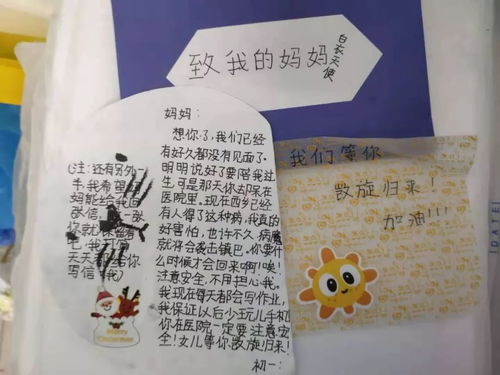 致我的妈妈
白衣天使
妈妈：
想你了，我们已经
有好久都没有见面了。
明明说好了要陪我过
生可是那天你却呆在
医院里。现在西乡已经
有人得了这种病，我真的
好害怕，也许不久病魔
就将会袭击镇巴。你要什
么时候才会回来啊！唉！
注意安全，不用担心我。
我现在每天都会写作业，
我保证以后少玩儿手机
你在医院一定要注意安
全！女儿等你敨旋归来！
初一：
（注：还有另外
手，我希望妈
妈能给我回
微信，一张
你就
吧，我
天天 给你
写信 我）
Merry
Christmas
我们等你
敨旋归来！
加油！！！